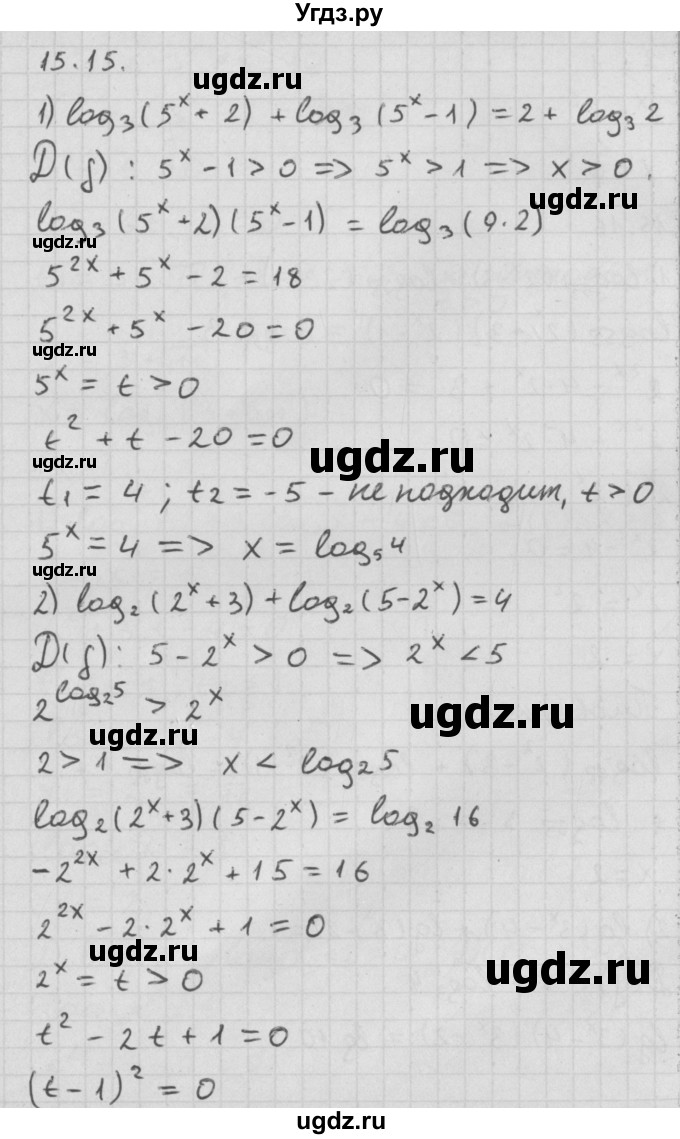 Угдз.ру
15.15.
ugdz.ru
1) log₃(5ˣ + 2) + log₃(5ˣ - 1) = 2 + log₃ 2
D(f): 5ˣ - 1 > 0 => 5ˣ > 1 => x > 0.
log₃(5ˣ + 2)(5ˣ - 1) = log₃(9·2)
ugdz.ru
5²ˣ + 5ˣ - 2 = 18
5²ˣ + 5ˣ - 20 = 0
ugdz.ru
5ˣ = t > 0
t² + t - 20 = 0
ugdz.ru
t₁ = 4; t₂ = -5 - не подходит, t > 0
5ˣ = 4 => x = log₅4
ugdz.ru
2) log₂(2ˣ + 3) + log₂(5 - 2ˣ) = 4
D(f): 5 - 2ˣ > 0 => 2ˣ < 5
2^log₂5 > 2ˣ
ugdz.ru
ugdz.ru
2 > 1 => x < log₂5
log₂(2ˣ + 3)(5 - 2ˣ) = log₂ 16
-2²ˣ + 2·2ˣ + 15 = 16
2²ˣ - 2·2ˣ + 1 = 0
ugdz.ru
2ˣ = t > 0
ugdz.ru
t² - 2t + 1 = 0
(t - 1)² = 0
ugdz.ru